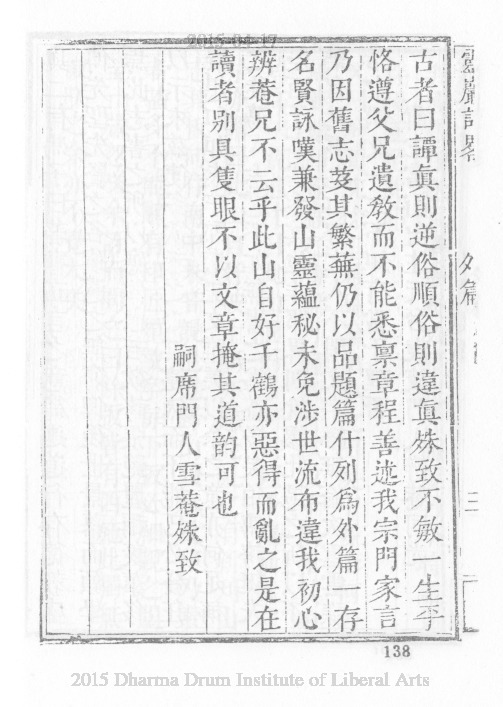 2015.04.17
靈巖記畧
外篇
二
古者曰諢眞則逆俗順俗則違眞姝致不敏一生乎
恪遵父兄遺敎而不能悉禀章程善述我宗門家言
乃因舊志芟其繁蕪仍以品題篇什列爲外篇一存
名賢詠嘆兼發山靈蘊秘未免涉世流布違我初心
辨菴兄不云乎此山自好千鶴亦惡得而亂之是在
讀者别具隻眼不以文章掩其道韵可也
嗣席門人雪菴姝致
138
2015 Dharma Drum Institute of Liberal Arts